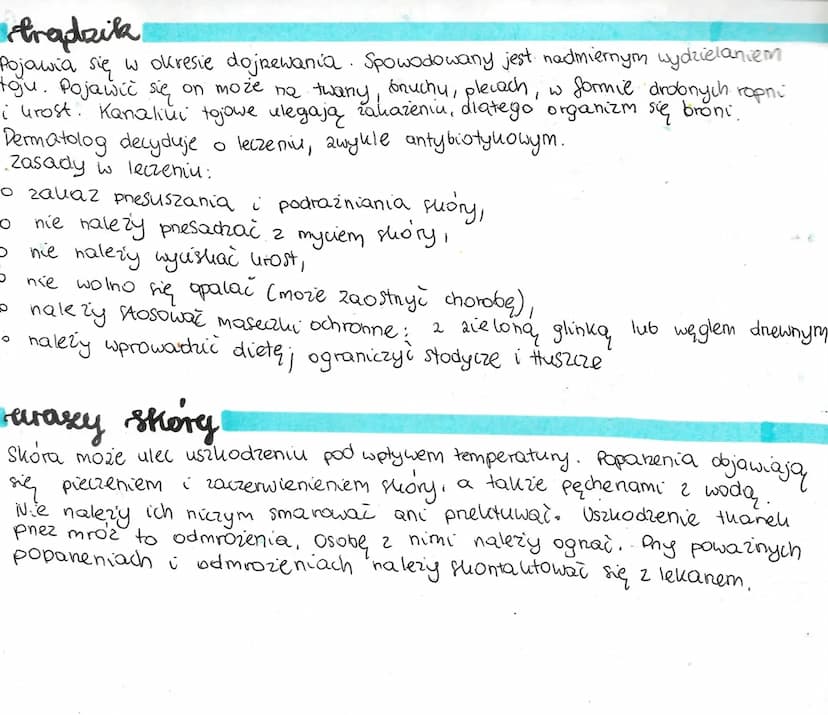 trądzik
Pojawia się w okresie dojrzewania. Spowodowany jest nadmiernym wydzielaniem
łoju. Pojawić się on może na twarzy, brzuchu, plecach, w formie drobnych ropni
i krost. Kanaliki łojowe ulegają zakażeniu, dlatego organizm się broni.
Dermatolog decyduje o leczeniu, zwykle antybiotykowym.
Zasady w leczeniu:
o zakaz przesuszania i podrażniania skóry,
o nie należy przesadzać z myciem skóry,
o nie należy wyciskać krost,
o nie wolno się opalać (może zaostrzyć chorobę),
o należy stosować maseczki ochronne: z zieloną glinką lub węglem drzewnym
o należy wprowadzić dietę; ograniczyć słodycze i tłuszcze
urazy skóry
Skóra może ulec uszkodzeniu pod wpływem temperatury. Poparzenia objawiają
się pieczeniem i zaczerwienieniem skóry, a także pęcherzami z wodą.
Nie należy ich niczym smarować ani przekłuwać. Uszkodzenie tkanek
przez mróz to odmrożenia. Osobę z nimi należy ogrzać. Przy poważnych
poparzeniach i odmrożeniach należy skontaktować się z lekarzem.